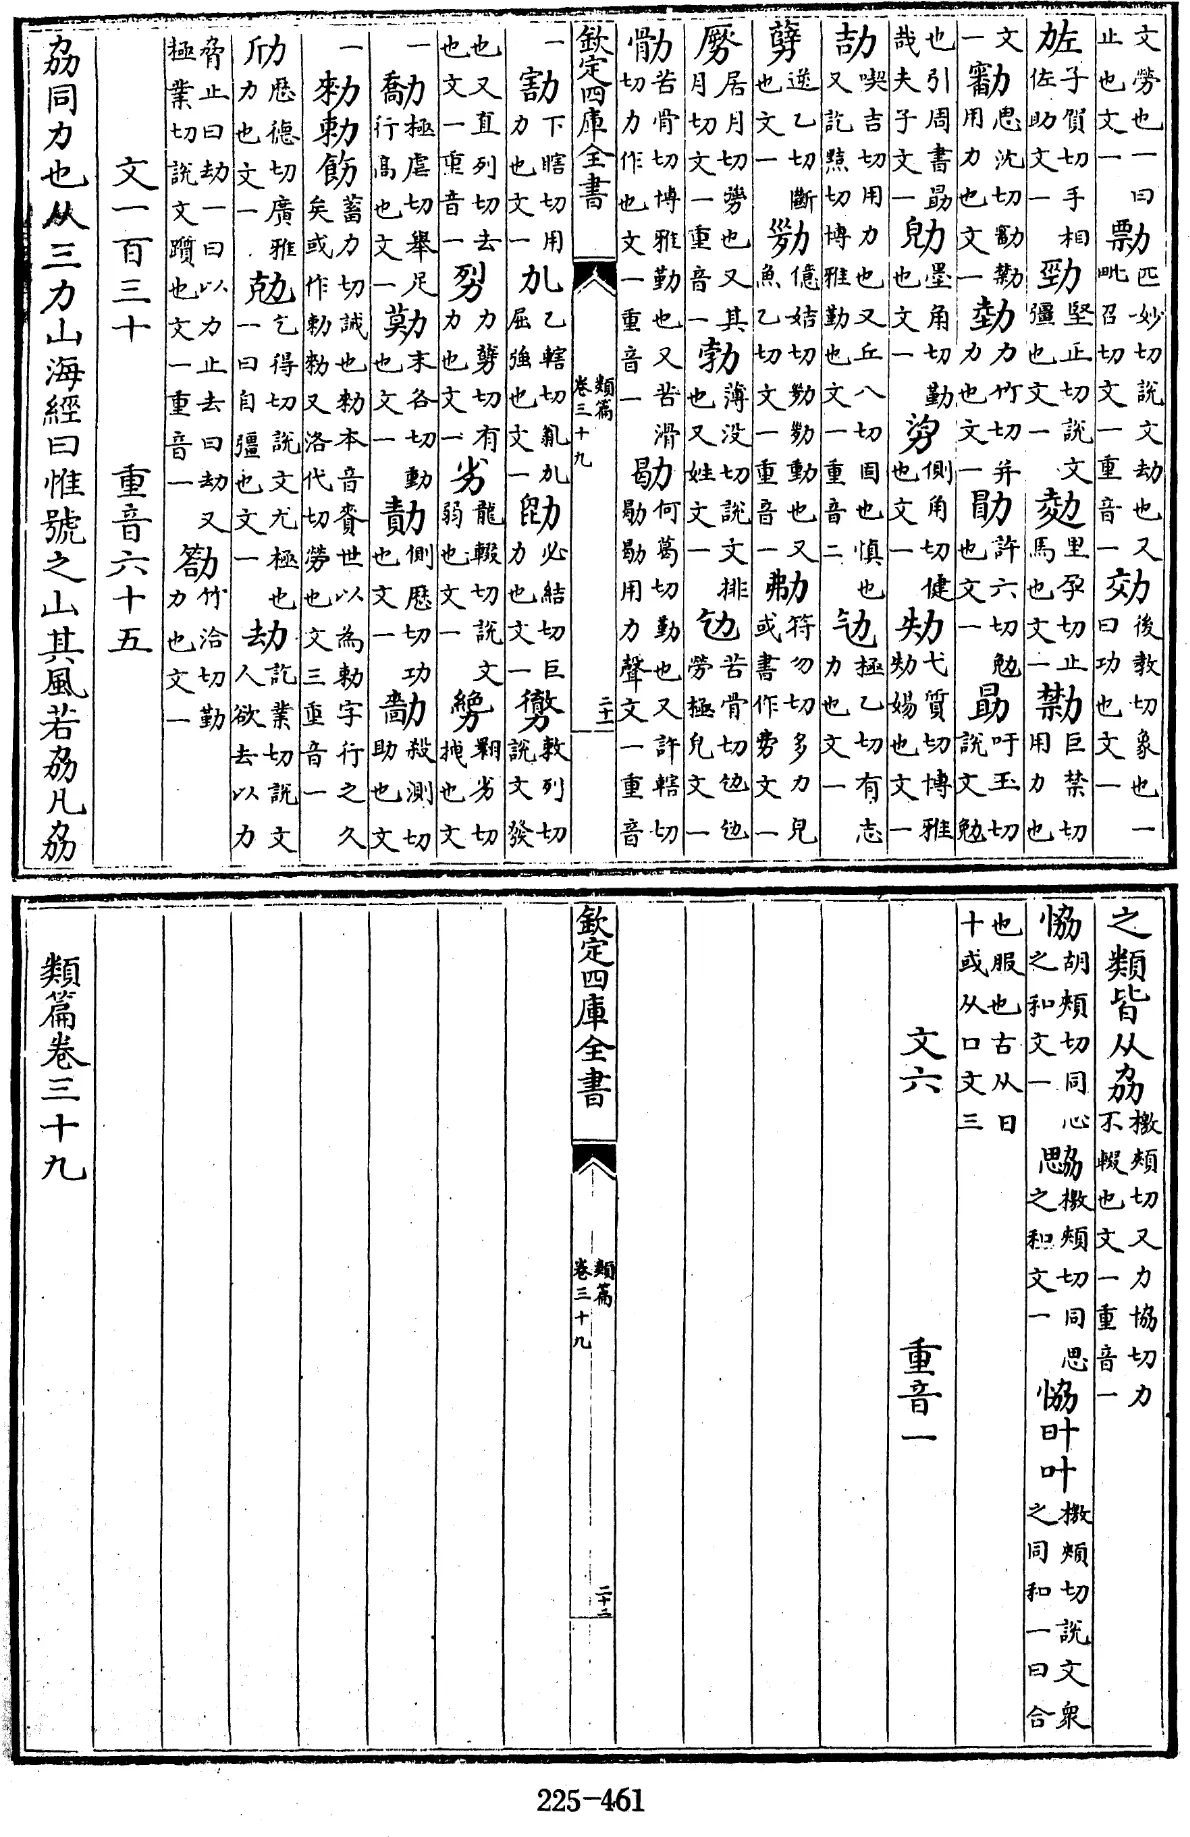 文勞也一曰止也文一勡匹妙切說文劫也又毗召切文一重音一効後教切象也一曰功也文一
㔫子賀切手相佐助文一勁堅正切說文彊也文一里孕切止馬也文一巨禁切用力也
文一思沈切用力也文一力竹切并力也文一勖許六切勉也文一勗吁玉切說文勉
也引周書勗哉夫子文一墨角切勤也文一側角切健也文一劮弋質切博雅劮婸也文一
劼喫吉切用力也又丘八切固也慎也又訖黠切博雅勤也文一重音二極乙切有志力也文一
逆乙切斷也文一億姞切動也又魚乙切文一重音一符勿切多力皃或書作文一
居月切勥也又其月切文一重音一勃薄没切說文排也又姓文一苦骨切勞極皃文一
苦骨切博雅勤也又苦滑切力作也文一重音一何葛切勤也又許轄切用力聲文一重音
欽定四庫全書 類篇卷三十九 二十二
一下瞎切用力也文一乙轄切屈強也文一必結切巨力也文一勶敕列切說文發
也又直列切去也文一重音一力孽切有力也文一劣龍輟切說文弱也文一劣切拖也文
一勪極虐切舉足行高也文一末各切動也文一勣側歷切功也文一殺測切助也文
一勑勅飭蓄力切誡也勑本音賚世以為勅字行之久矣或作勅勑又洛代切勞也文三重音一
歷德切廣雅力也文一勀乞得切說文尤極也一曰自彊也文一劫訖業切說文人欲去以力
脅止曰劫一曰以力止去曰劫又極業切說文躓也文一重音一竹洽切勤力也文一
文一百三十 重音六十五
劦同力也从三力山海經曰惟號之山其風若劦凡劦
之類皆从劦檄頰切又力協切力不輟也文一重音一
恊胡頰切同心之和文一勰檄頰切同思之和文一協旪叶檄頰切說文衆之同和一曰合
也服也古从日十或从口文三
文六 重音一
欽定四庫全書 類篇卷三十九 二十二
類篇卷三十九
225-461